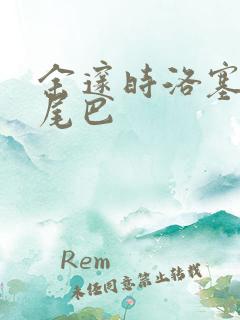 余邃时洛塞
尾巴
Rem
未经同意禁止转载